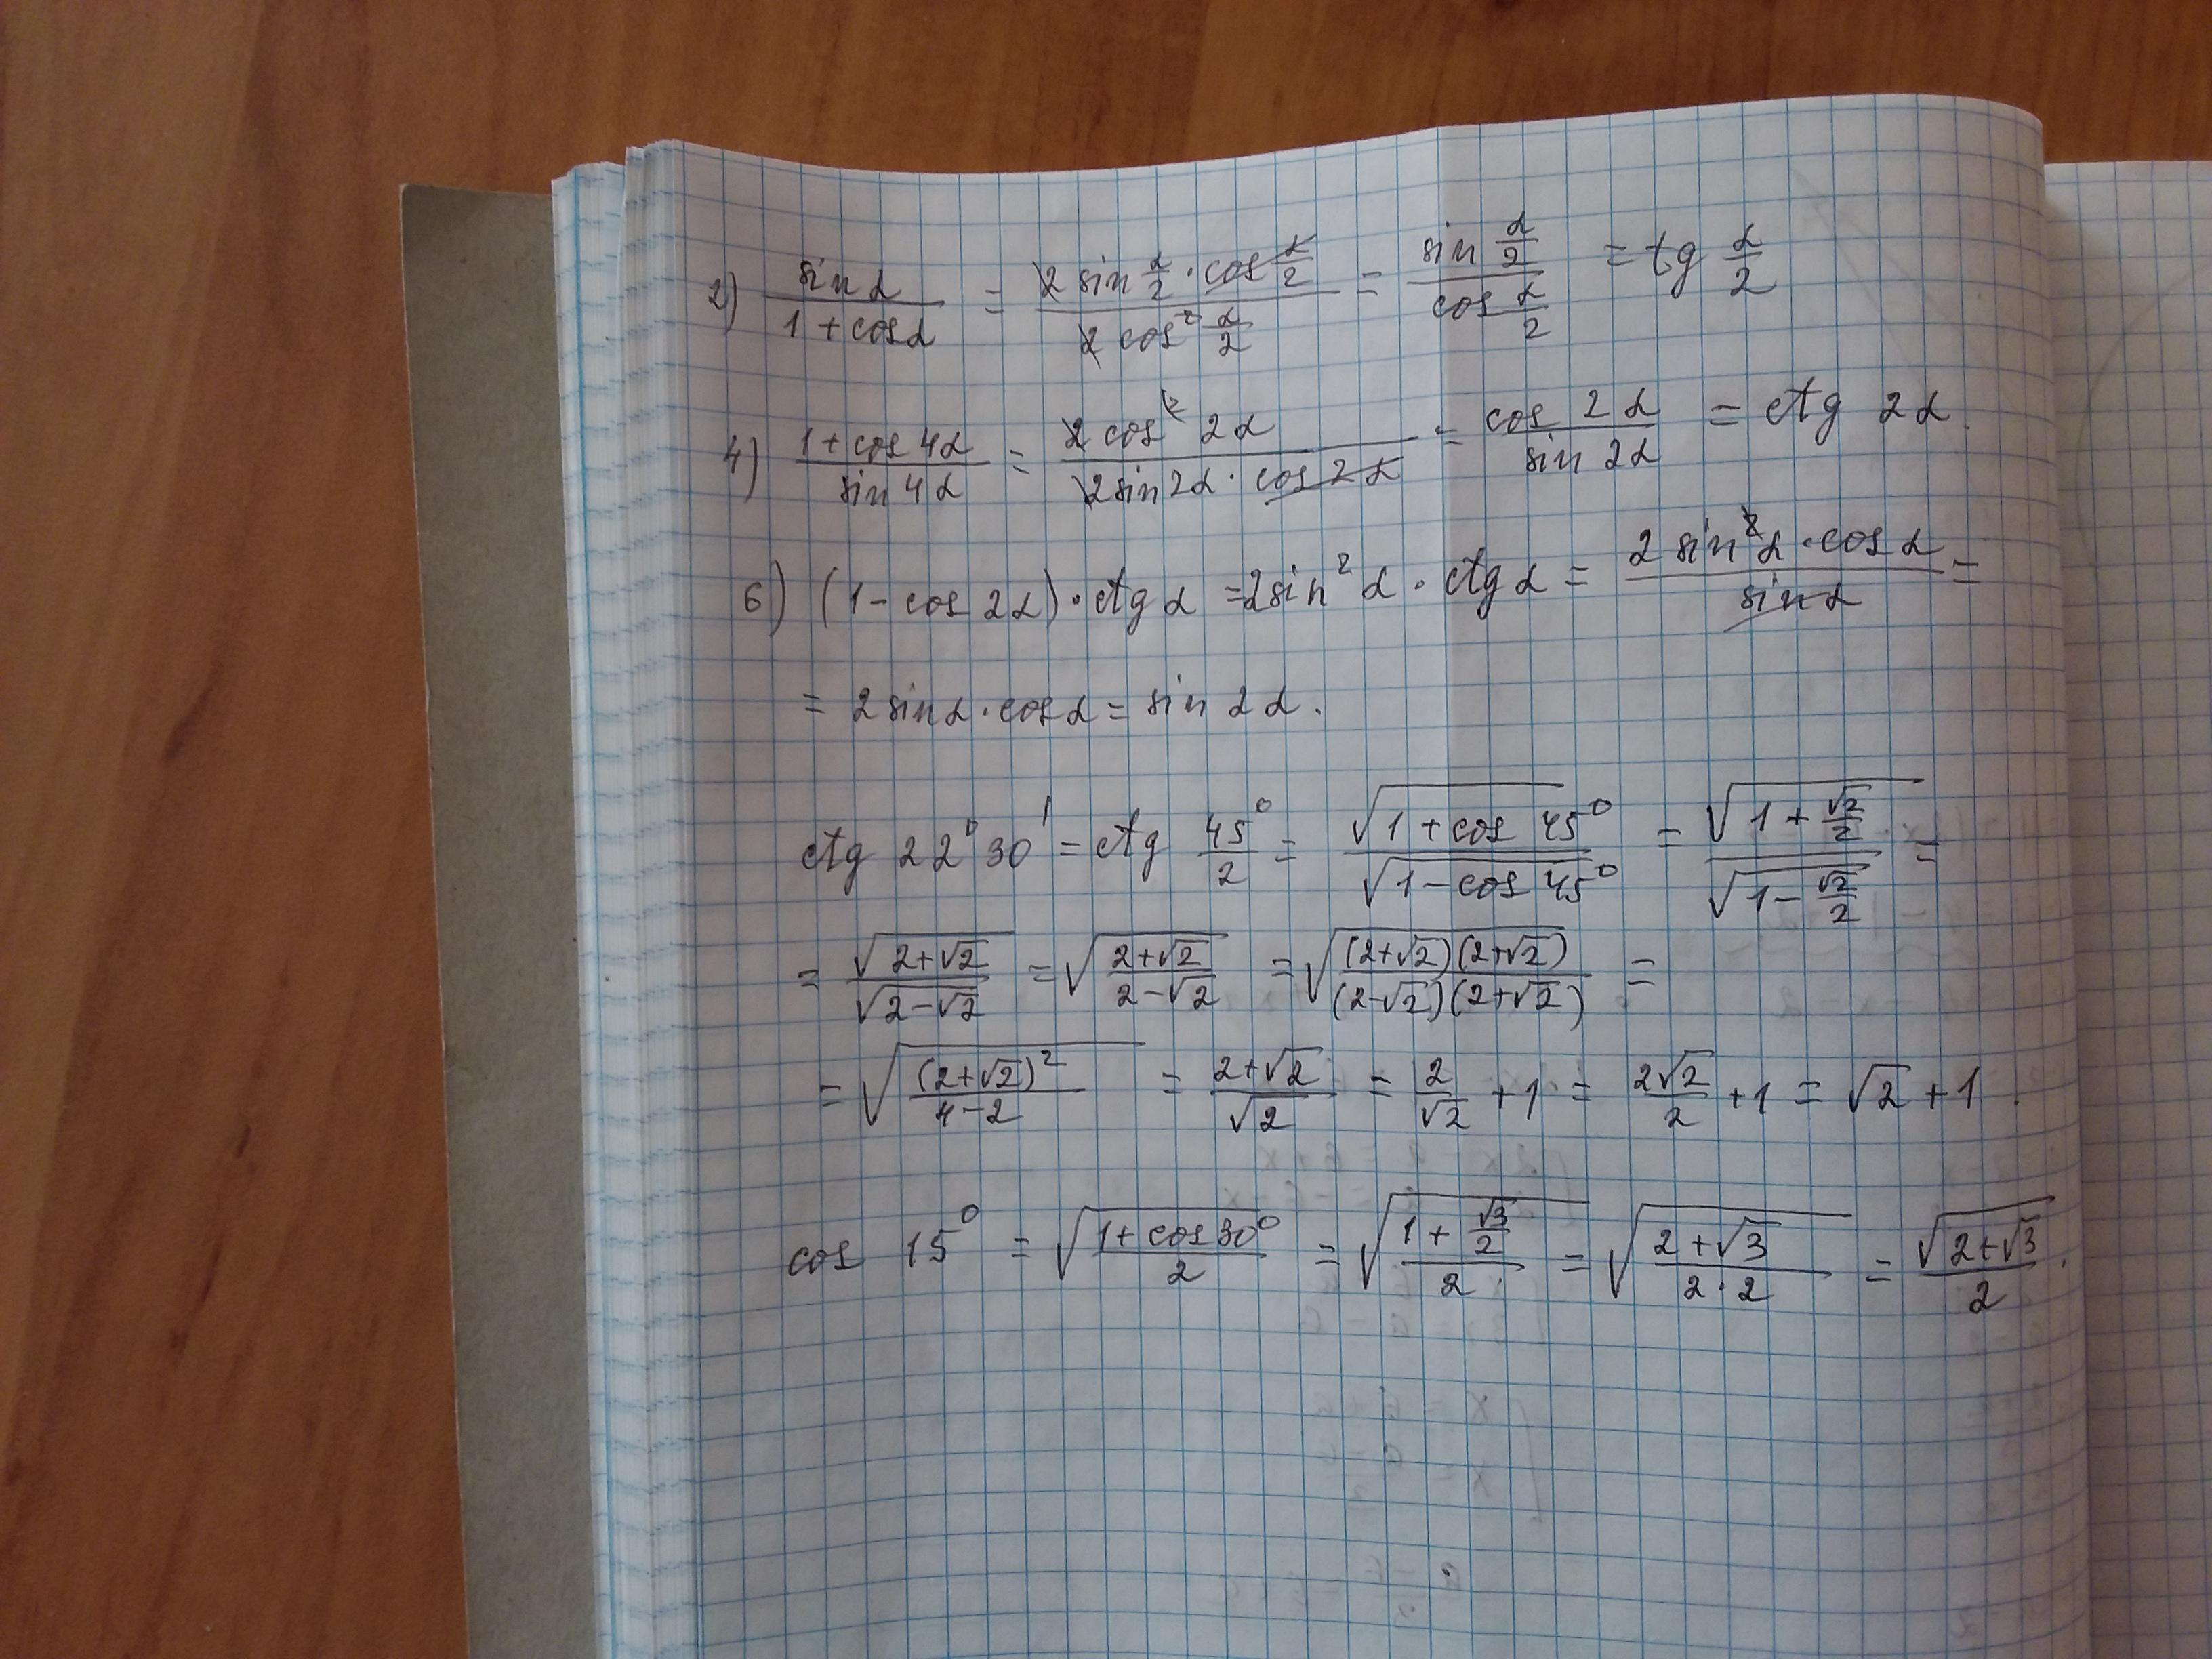 2) sin α / (1 + cos α) = 2 sin α/2 · cos α/2 / 2 cos² α/2 = sin α/2 / cos α/2 = tg α/2
4) (1 + cos 4α) / sin 4α = 2 cos² 2α / 2 sin 2α · cos 2α = cos 2α / sin 2α = ctg 2α.
6) (1 - cos 2α) · ctg α = 2 sin² α · ctg α = 2 sin² α · cos α / sin α =
= 2 sin α · cos α = sin 2α.
ctg 22° 30' = ctg 45°/2 = √(1 + cos 45°) / √(1 - cos 45°) = √(1 + √2/2) / √(1 - √2/2) =
= √(2+√2) / √(2-√2) = √((2+√2) / (2-√2)) = √((2+√2)(2+√2) / (2-√2)(2+√2)) =
= √((2+√2)² / (4-2)) = (2+√2) / √2 = 2/√2 + 1 = 2√2/2 + 1 = √2 + 1.
cos 15° = √((1 + cos 30°) / 2) = √((1 + √3/2) / 2) = √((2 + √3) / 2·2) = √(2+√3) / 2.